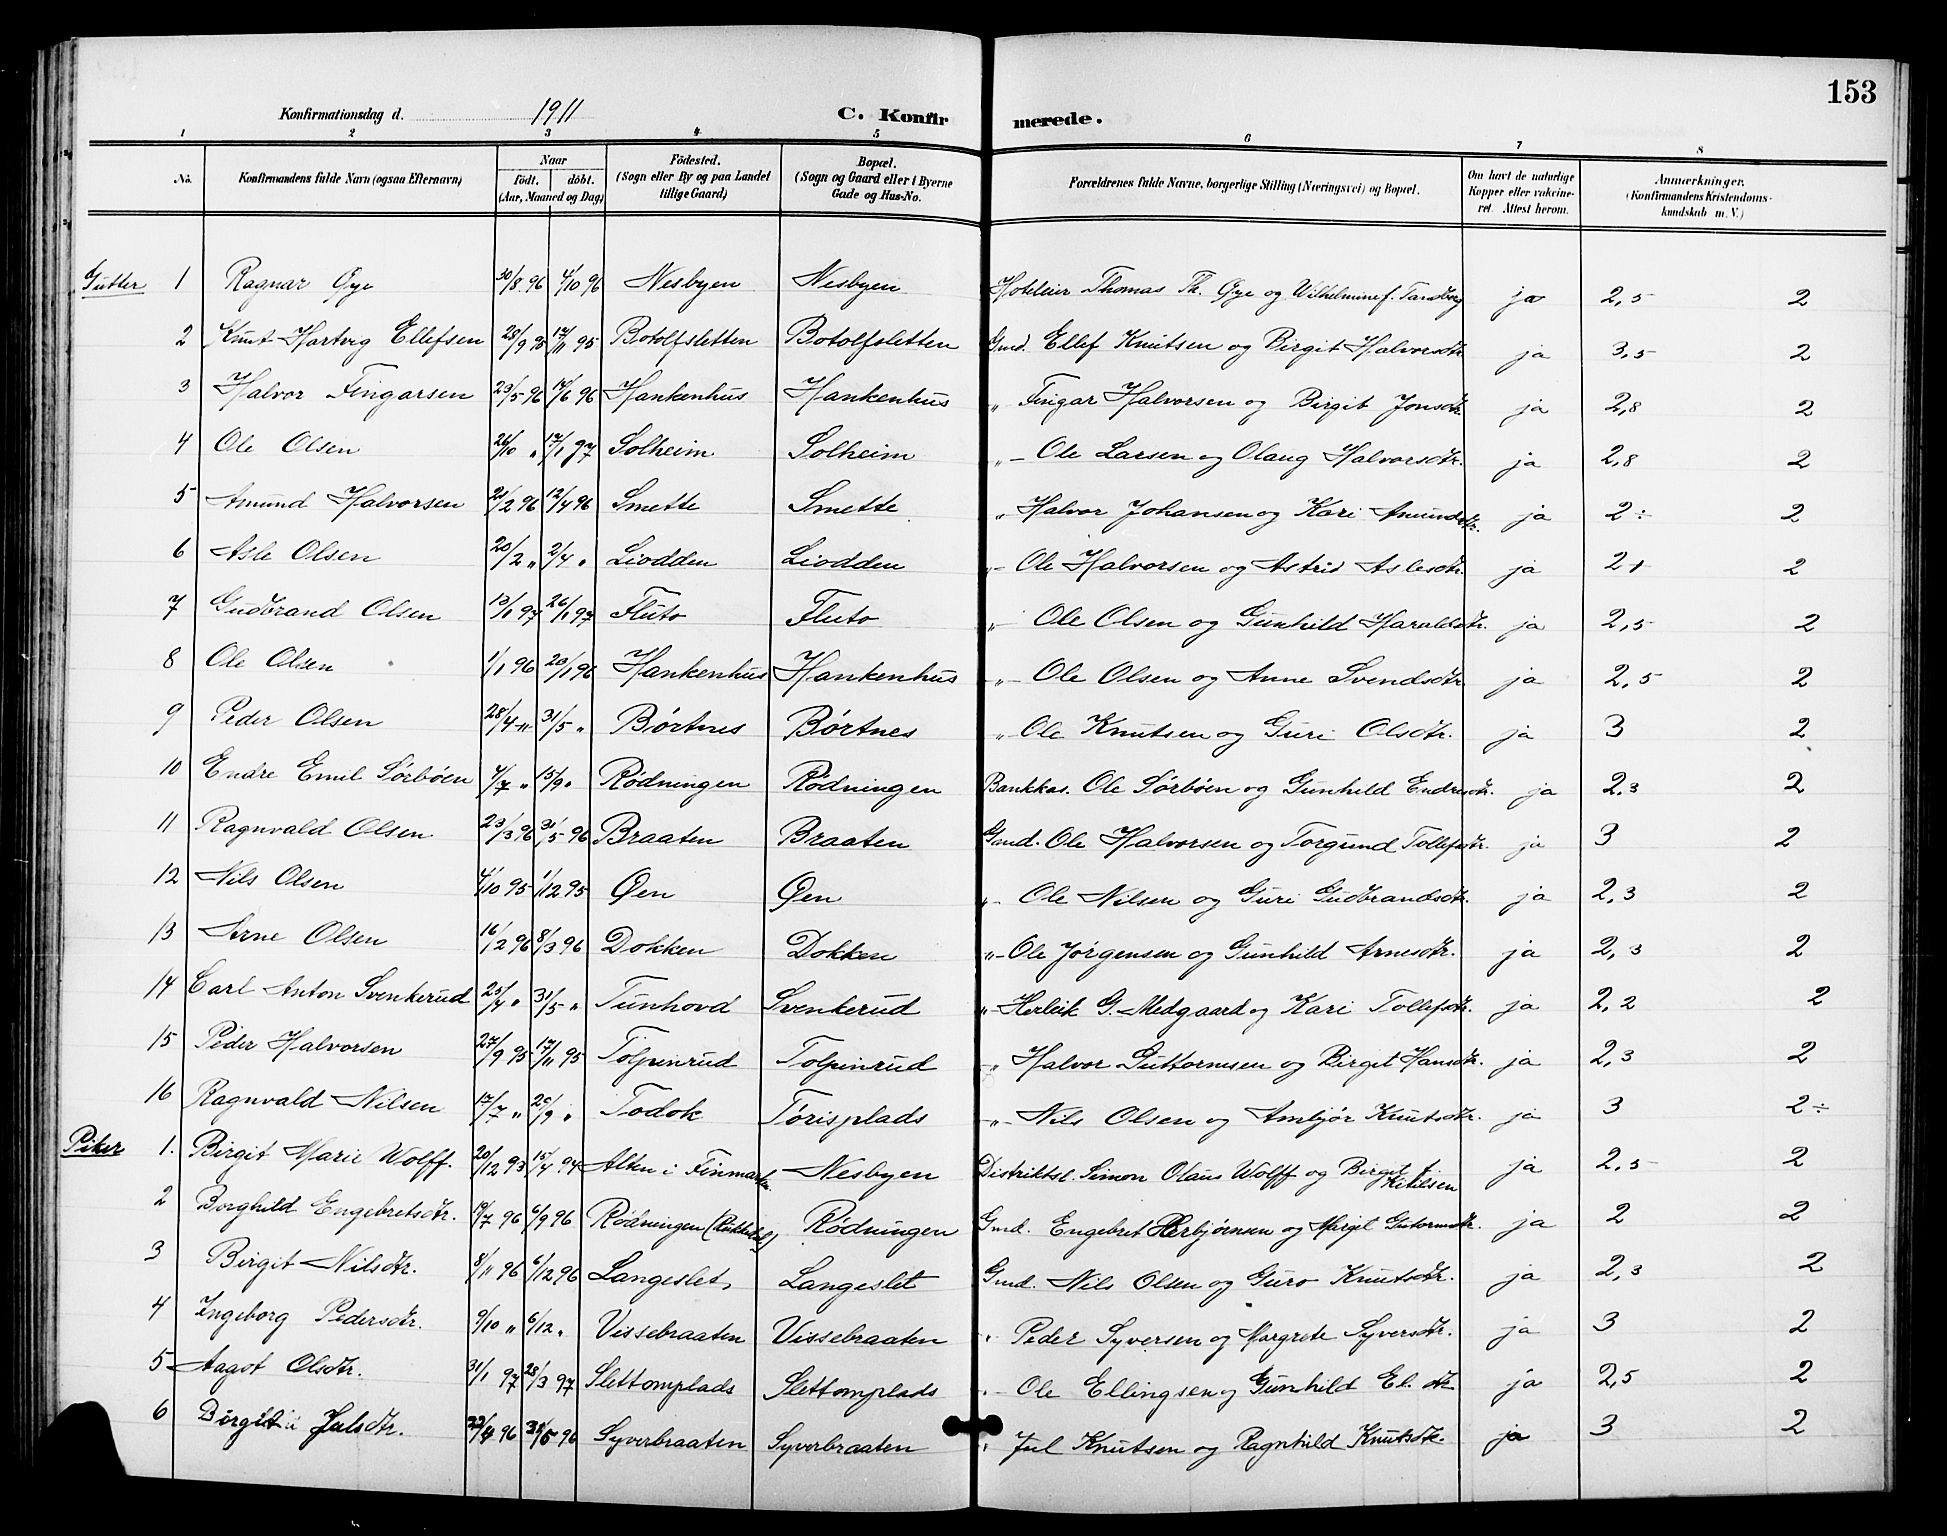 153
Konfirmationsdag d. 1911 C. Konfirmerede.
1 2 3 4 5 6 7 8
No. Konfirmandens fulde Navn (ogsaa Efternavn) Naar födt. döbt. (Aar, Maaned og Dag) Födested. (Sogn eller By og paa Landet tillige Gaard) Bopæl. (Sogn og Gaard eller i Byerne Gade og Hus-No. Forældrenes fulde Navne, borgerlige Stilling (Næringsvei) og Bopæl. Om havt de naturlige Kopper eller vakcineret. Attest herom. Anmærkninger. (Konfirmandens Kristendomskundskab m. V.)
Gutter 1 Ragnar Øye 30/8 96 4/10 96 Nesbyen Nesbyen Hoteleier Thomas Th. Øye og Wilhelmine f. Tandberg ja 2,5 2
2 Knut Hartvig Ellefsen 28/9 95 17/11 95 Botolfsletten Botolfsletten Gmd. Ellef Knutsen og Birgit Halvorsdtr. ja 3,5 2
3 Halvor Fingarsen 23/5 96 14/6 96 Hankenhus Hankenhus " Fingar Halvorsen og Birgit Jonsdtr. ja 2,8 2
4 Ole Olsen 26/10 " 17/1 97 Solheim Solheim "- Ole Larsen og Olaug Halvorsdtr. ja 2,8 2
5 Amund Halvorsen 21/2 96 12/4 96 Smette Smette " Halvor Johansen og Kari Amundsdtr. ja 2÷ 2
6 Asle Olsen 20/2 " 2/4 " Liodden Liodden "- Ole Halvorsen og Astrid Aslesdtr. ja 2+ 2
7 Gudbrand Olsen 13/1 97 26/1 97 Fluto Fluto " Ole Olsen og Gunhild Haraldsdtr. ja 2,5 2
8 Ole Olsen 1/1 96 20/1 96 Hankenhus Hankenhus "- Ole Olsen og Anne Svendsdtr ja 2,5 2
9 Peder Olsen 28/4 " 31/5 " Børtnes Børtnes " Ole Knutsen og Guri Olsdtr. ja 3 2
10 Endre Emil Sørbøen 4/7 " 15/9 " Rødningen Rødningen Bankkas. Ole Sørbøen og Gunhild Endresdtr. ja 2,3 2
11 Ragnvald Olsen 23/3 96 31/5 96 Braaten Braaten Gmd. Ole Halvorsen og Torgund Tollefsdtr. ja 3 2
12 Nils Olsen 4/10 95 1/12 95 Øen Øen "- Ole Nilsen og Guri Gudbrandsdtr. ja 2,3 2
13 Arne Olsen 16/2 96 8/3 96 Dokken Dokken "- Ole Jørgensen og Gunhild Arnesdtr. ja 2,3 2
14 Carl Anton Svenkerud 25/4 " 31/5 " Tunhovd Svenkerud " Herleik G. Medgaard og Kari Tollefsdtr. ja 2,2 2
15 Peder Halvorsen 27/9 95 17/11 95 Tolpinrud Tolpinrud " Halvor Guttormsen og Birgit Hansdtr. ja 2,3 2
16 Ragnvald Nilsen 17/7 " 20/9 " Todok Tørisplads "- Nils Olsen og Ambjør Knutsdtr. ja 3 2÷
Piker 1. Birgit Marie Wolff. 20/12 93 15/4 94 Alten i Finmarken. Nesbyen Distriktsl. Simon Olaus Wolff og Birgit f. Ketilsen ja 2,5 2
2 Borghild Engebretsdtr. 19/7 96 6/9 96 Rødningen Rødningen Gmd. Engebret Herbjørnsen og Margit Gutormsdtr. ja 2 2
3 Birgit Nilsdtr. 8/11 96 6/12 96 Langeslet, Langeslet Gmd. Nils Olsen og Guro Knutsdtr. ja 2,3 2
4 Ingeborg Pedersdtr. 9/10 " 6/12 " Vissebraaten Vissebraaten " Peder Syversen og Margrete Syversdtr. ja 3 2
5 Aagot Olsdtr. 31/1 97 28/3 97 Slettomplads Slettomplads " Ole Ellingsen og Gunhild El. dtr ja 2,5 2
6 Birgit Julsdtr. 22/4 96 31/5 96 Syverbraaten Syverbraaten " Jul Knutsen og Ragnhild Knutsdtr. ja 3 2